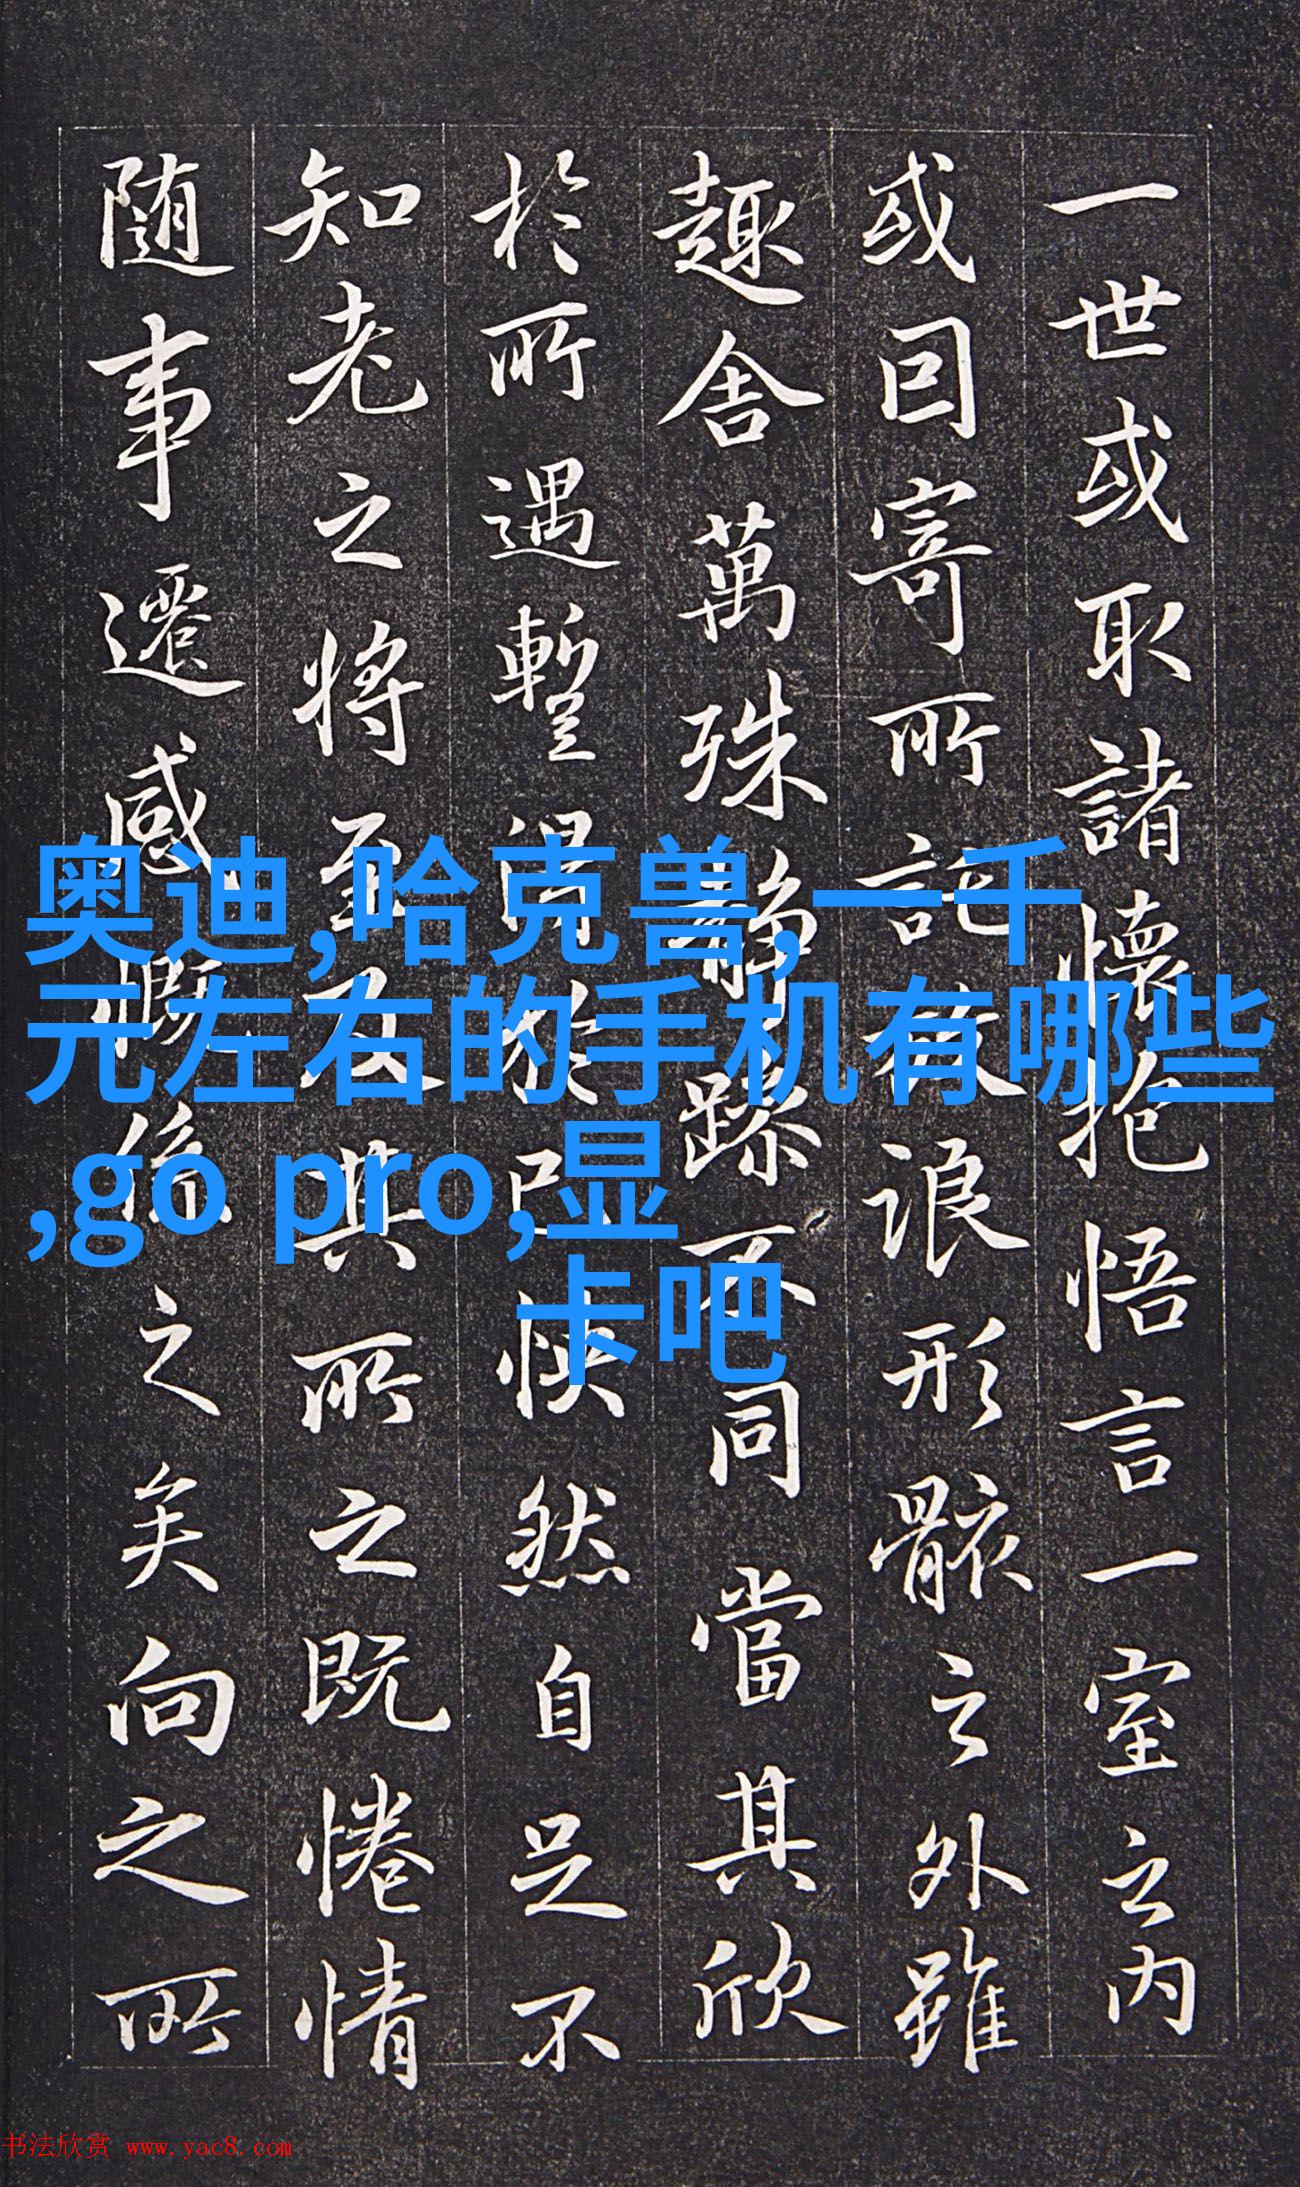 一世或取諸懷抱悟言一室之内
或因寄所託放浪形骸之外雖
趣舍萬殊静躁不同當其欣
於所遇暫得於己快然自足不
知老之将至及其所之既惓情
随事遷感慨係之矣向之所
奥迪,哈克兽,一千
元左右的手机有哪些
,go pro,显
卡吧
书法欣赏 www.yac8.com